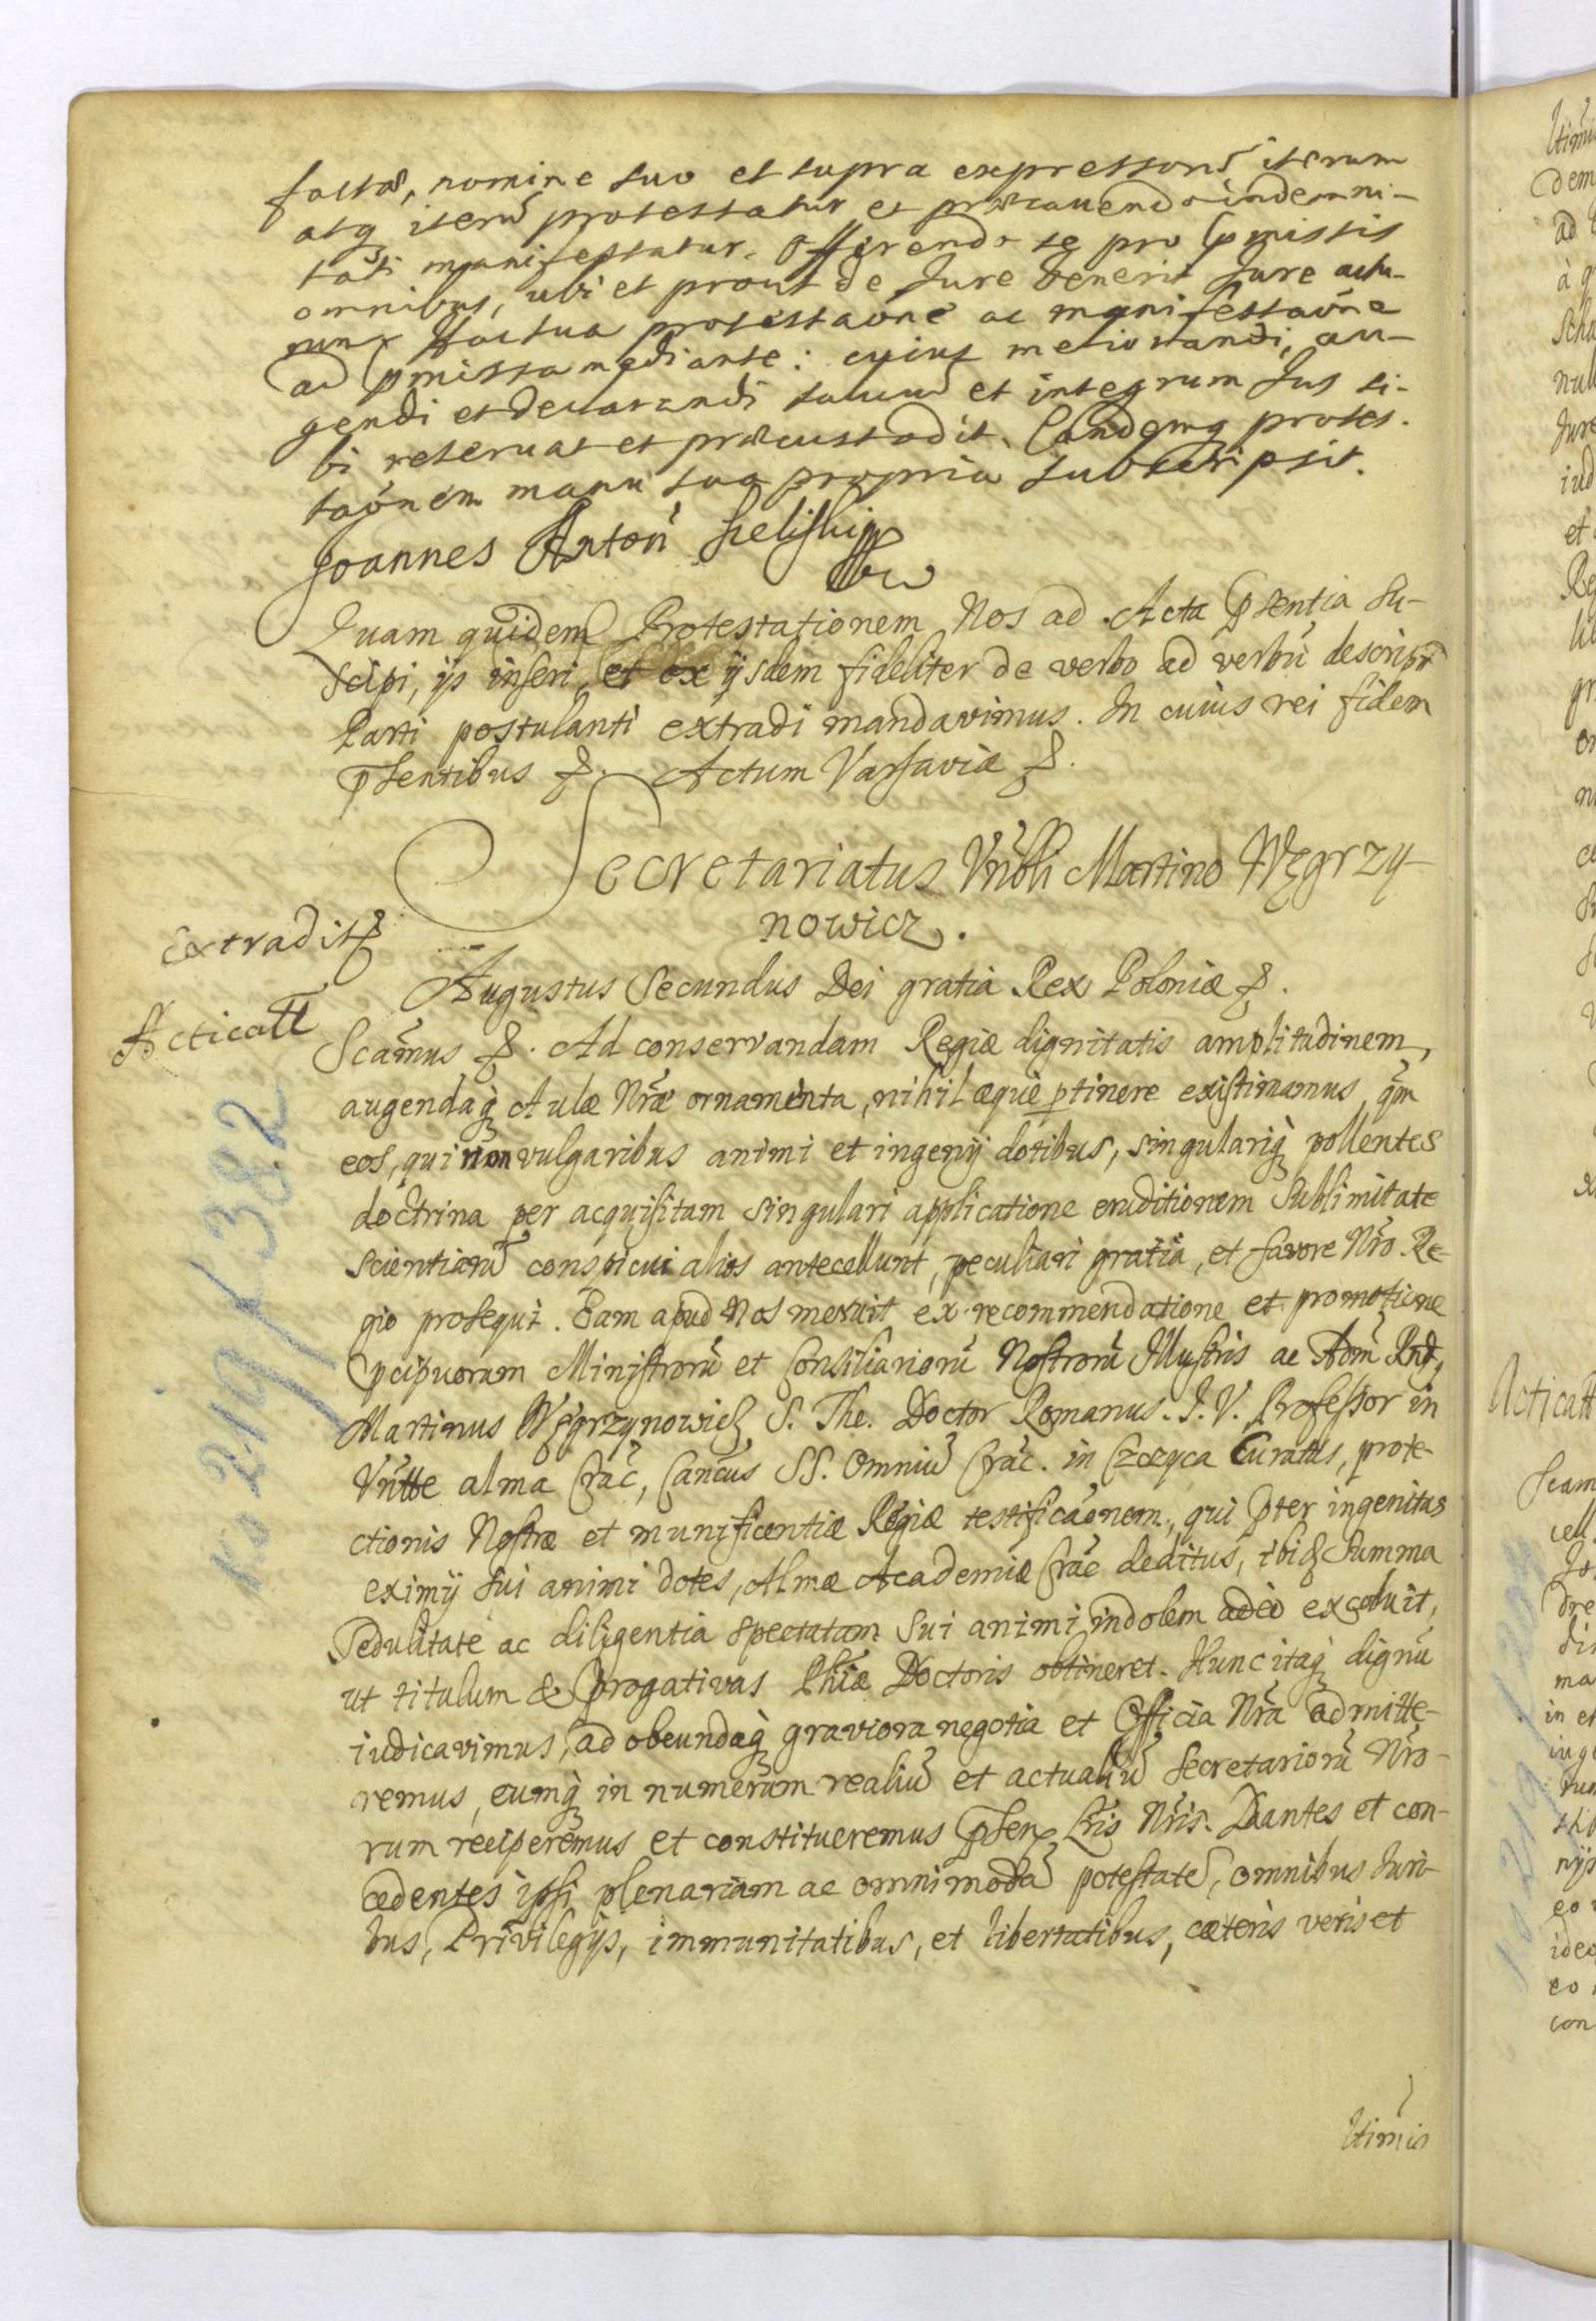 factas, nomine suo et supra expressorū iterum
atq iterū protestatur et præcavendo indemni-
tati manifestatur. Offerendo se pro pmissis
omnibus, ubi et prout de Jure venerit Jure actu-
rum protestaōne ac manifestaōne
ad pmissa mediante: cujus meliorandi, au-
gendi et declarandi salvum et integrum Jus si-
bi reservat et præcustodit. Eandemq protes-
taōnem manu sua propria subscripsit.
Joannes Antoñ
Quam quidem Protestationem Nos ad Acta psentia Su-
scipi, ijs inseri, et ex ijsdem fideliter de verbo ad verbū descripť
Parti postulanti extradi mandavimus. In cuius rei fidem
psentibus &. Actum Varsaviæ &.
Secretariatus Vnbli Martino Węgrzy-
nowicz.
Extradit
Acticatt
Augustus Secundus Dei gratia Rex Poloniæ &.
Scamus &. Ad conservandam Regiæ dignitatis amplitudinem,
augendaq Aulæ Nræ ornamenta, nihil æque ptinere existimamus, qm
eos, qui non vulgaribus animi et ingenij dotibus, singulariq pollentes
doctrina per acquisitam singulari applicatione eruditionem sublimitate
scientiarū conspicui alios antecellunt, peculiari gratia, et favore Nro Re-
gio prosequi. Eam apud Nos meruit ex recommendatione et promotione
pcipuorum Ministrorū et Consiliariorū Nostrorū Illustris ac Adm Rnd,
Martinus Węgrzynowicz S. The. Doctor Romanus. J. V. Professor in
Vntte alma Crac, Cancus SS. Omniū Crac. in Curatus, prote-
ctionis Nostræ et munificentiæ Regiæ testificaōnem, qui pter ingenitas
eximij sui animi dotes, Almæ Academiæ Crac deditus, ibiq summa
Sedulitate ac diligentia spectatam Sui animi indolem adeo excoluit,
ut titulum & progativas Phiæ Doctoris obtineret. Hunc itaq dignū
iudicavimus, ad obeundaq graviora negotia et Officia Nra admitte-
remus, eumq in numerum realiū et actualiū Secretariorū Nro-
rum reciperemus et constitueremus psen Lris Nris. Dantes et con-
cedentes ipsi plenariam ac omnimodā potestatē, omnibus Juri-
bus, Privilegijs, immunitatibus, et libertatibus, cæteris veris et
ltimis
Ks 219/382